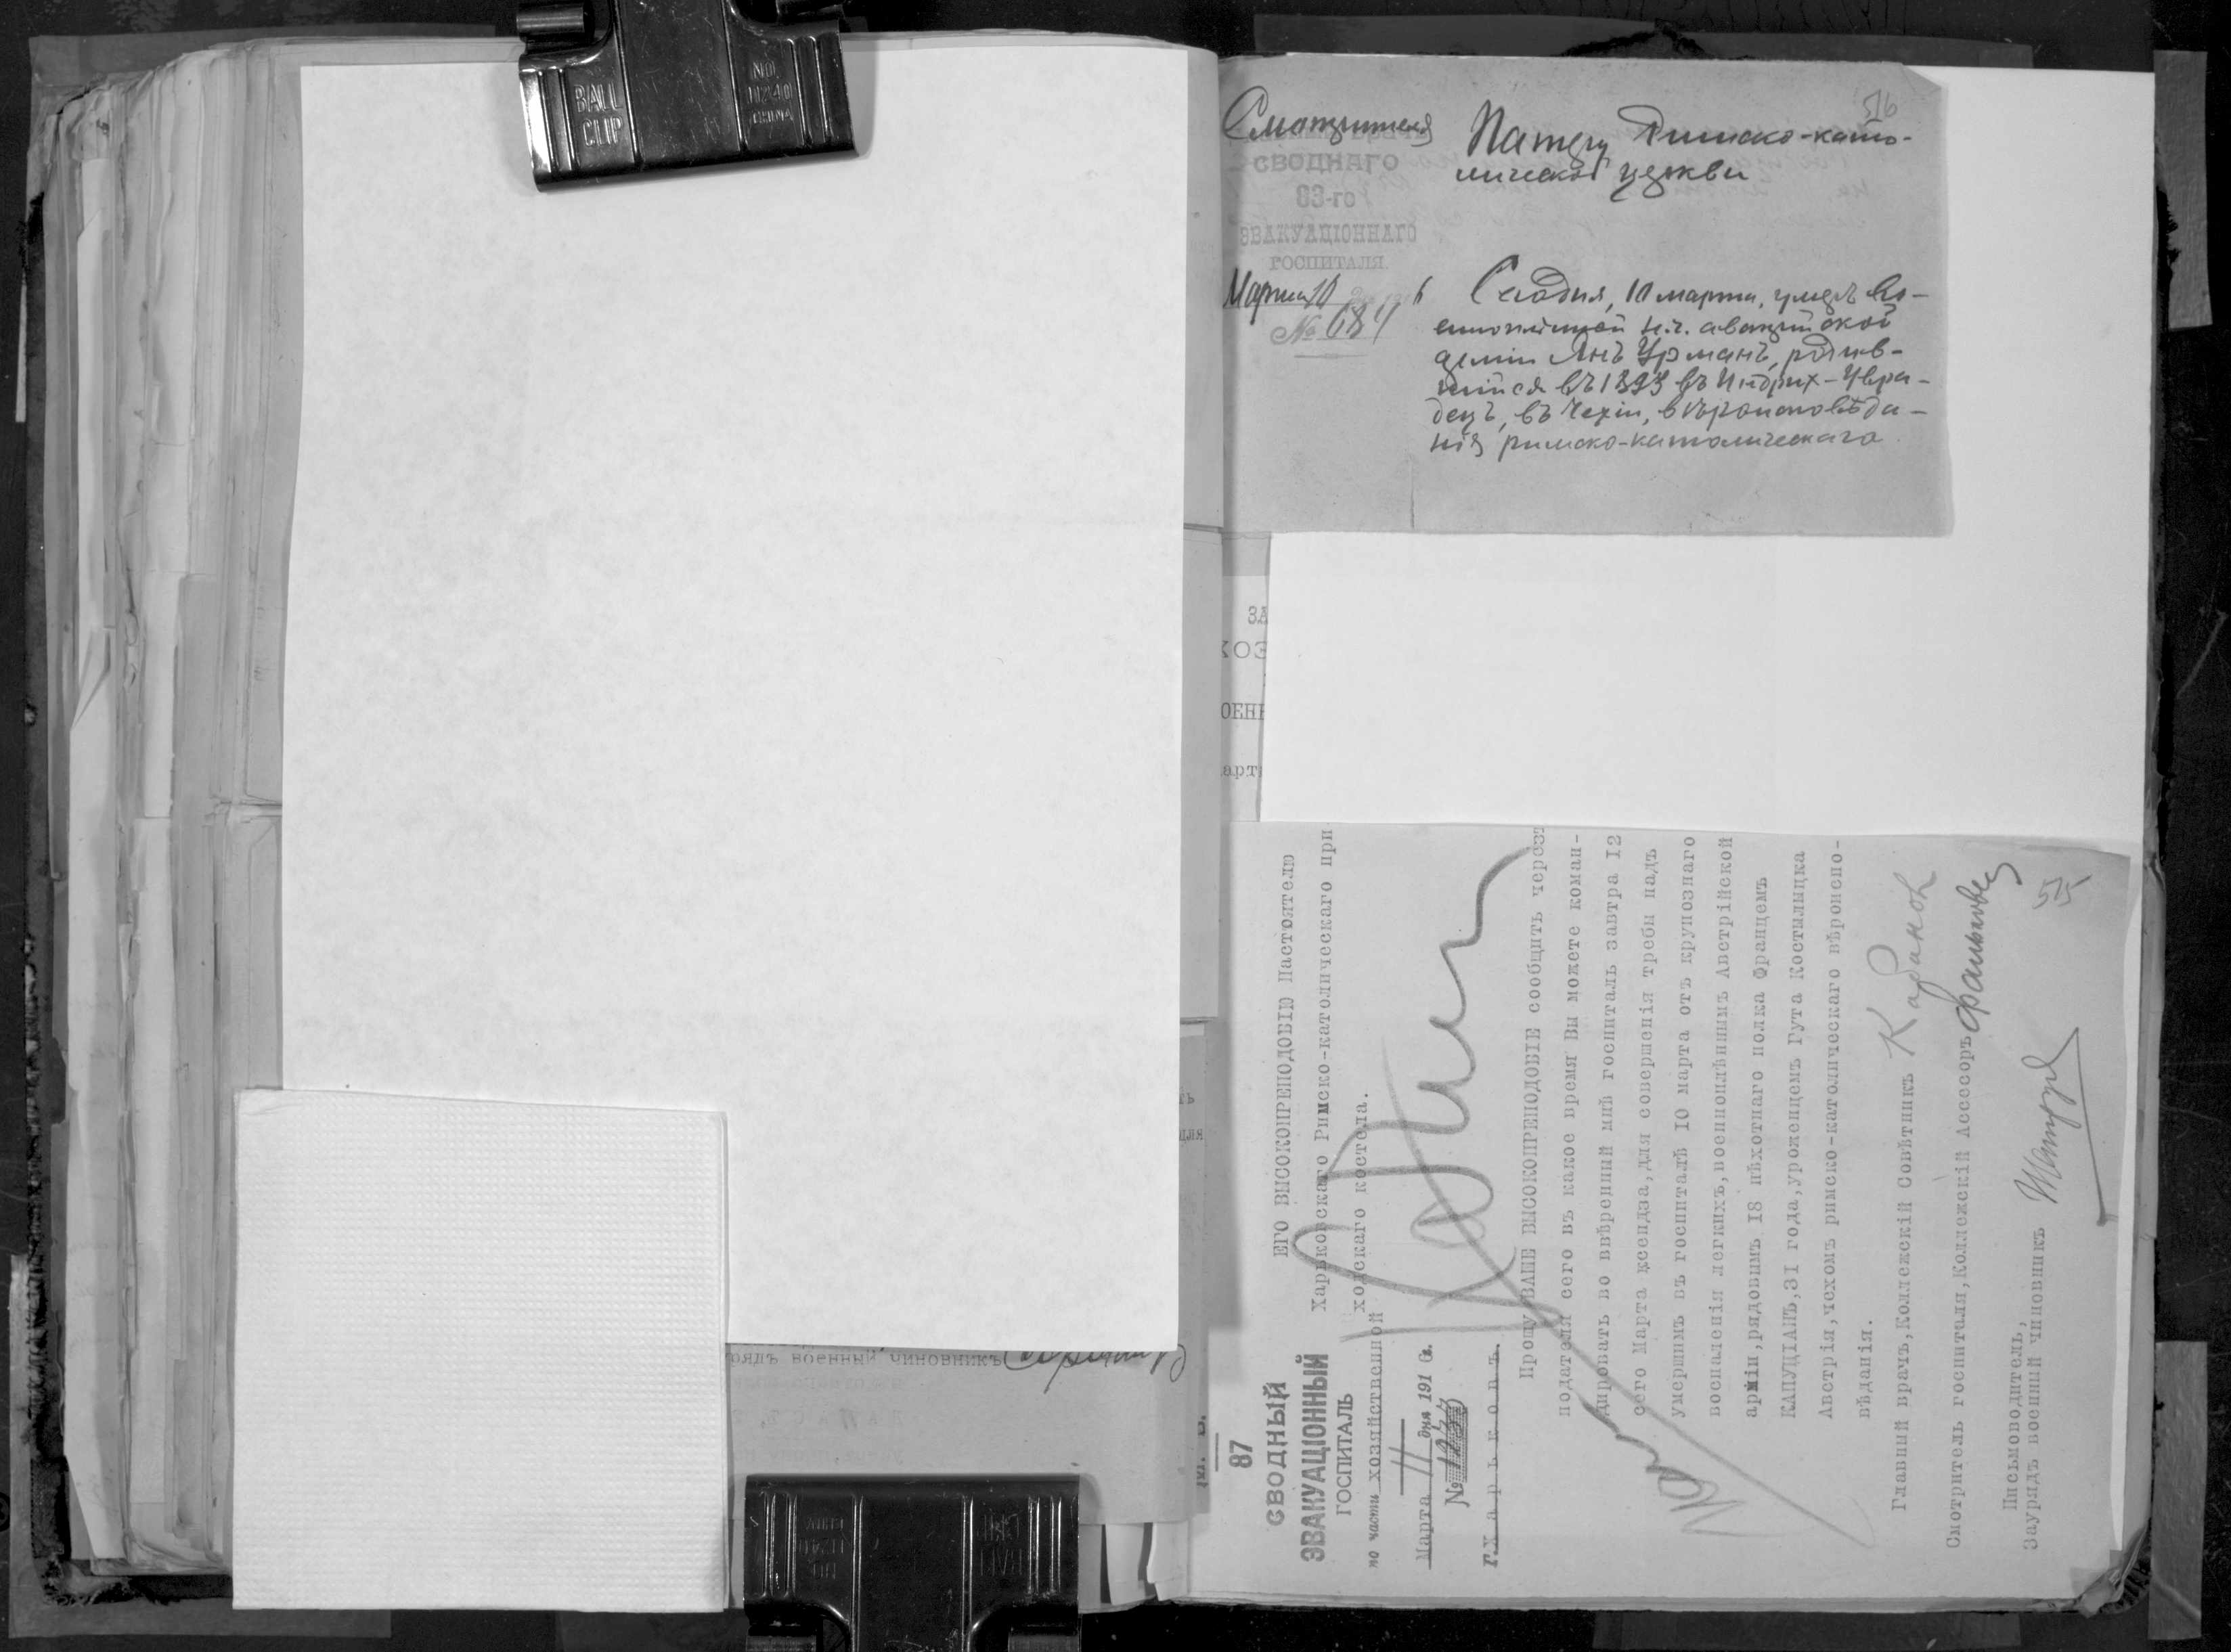 BALL
CLIP
NO.
11240
CHINA
рядъ военный чиновникъ
516
Смотритель
СВОДНАГО
83-го
ЭВАКУАЦІОННАГО
ГОСПИТАЛЯ
Марта 10
№ 684
Патеру Римско-като-
лической церкви
Сегодня, 10 марта, умеръ во-
еннопленной н.ч. австрійской
арміи Янъ Урманъ, родив-
шійся въ 1893 въ Индрих-Увра-
децъ, въ Чехіи, вѣроисповѣда-
нія римско-католическаго
ЗА
ХОЗ
ОЕНН
арта
87
СВОДНЫЙ
ЭВАКУАЦІОННЫЙ
ГОСПИТАЛЬ
по части хозяйственной
Марта 11 дня 191 6.
№
г. Х а р ь к о в ъ.
ЕГО ВЫСОКОПРЕПОДОБІЮ Настоятелю
Харьковскаго Римско-католическаго при
ходскаго костела.
Прошу ВАШЕ ВЫСОКОПРЕПОДОБІЕ сообщить черезъ
подателя сего въ какое время Вы можете коман-
дировать во ввѣренный мнѣ госпиталь завтра 12
сего Марта ксендза, для совершенія требы надъ
умершимъ въ госпиталѣ 10 марта отъ крупознаго
воспаленія легкихъ, военноплѣннымъ Австрійской
арміи, рядовымъ 18 пѣхотнаго полка Францемъ
КАПУЦІАНЪ, 31 года, уроженцемъ Гута Костылыцка
Австрія, чехомъ римско-католическаго вѣроиспо-
вѣданія.
Главный врачъ, Коллежскій Совѣтникъ Кабанов
Смотритель госпиталя, Коллежскій Ассесоръ
Письмоводитель,
Заурядъ военный чиновникъ
515